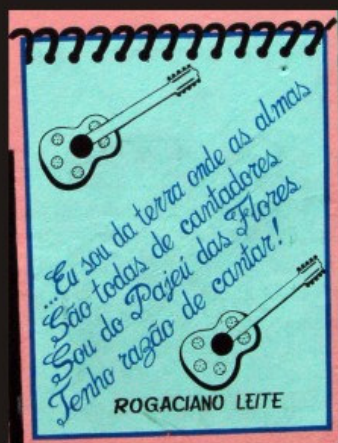 ...Eu sou da terra onde as almas
São todas de cantadores
Sou do Pajeú das Flores
Tenho razão de cantar!
ROGACIANO LEITE